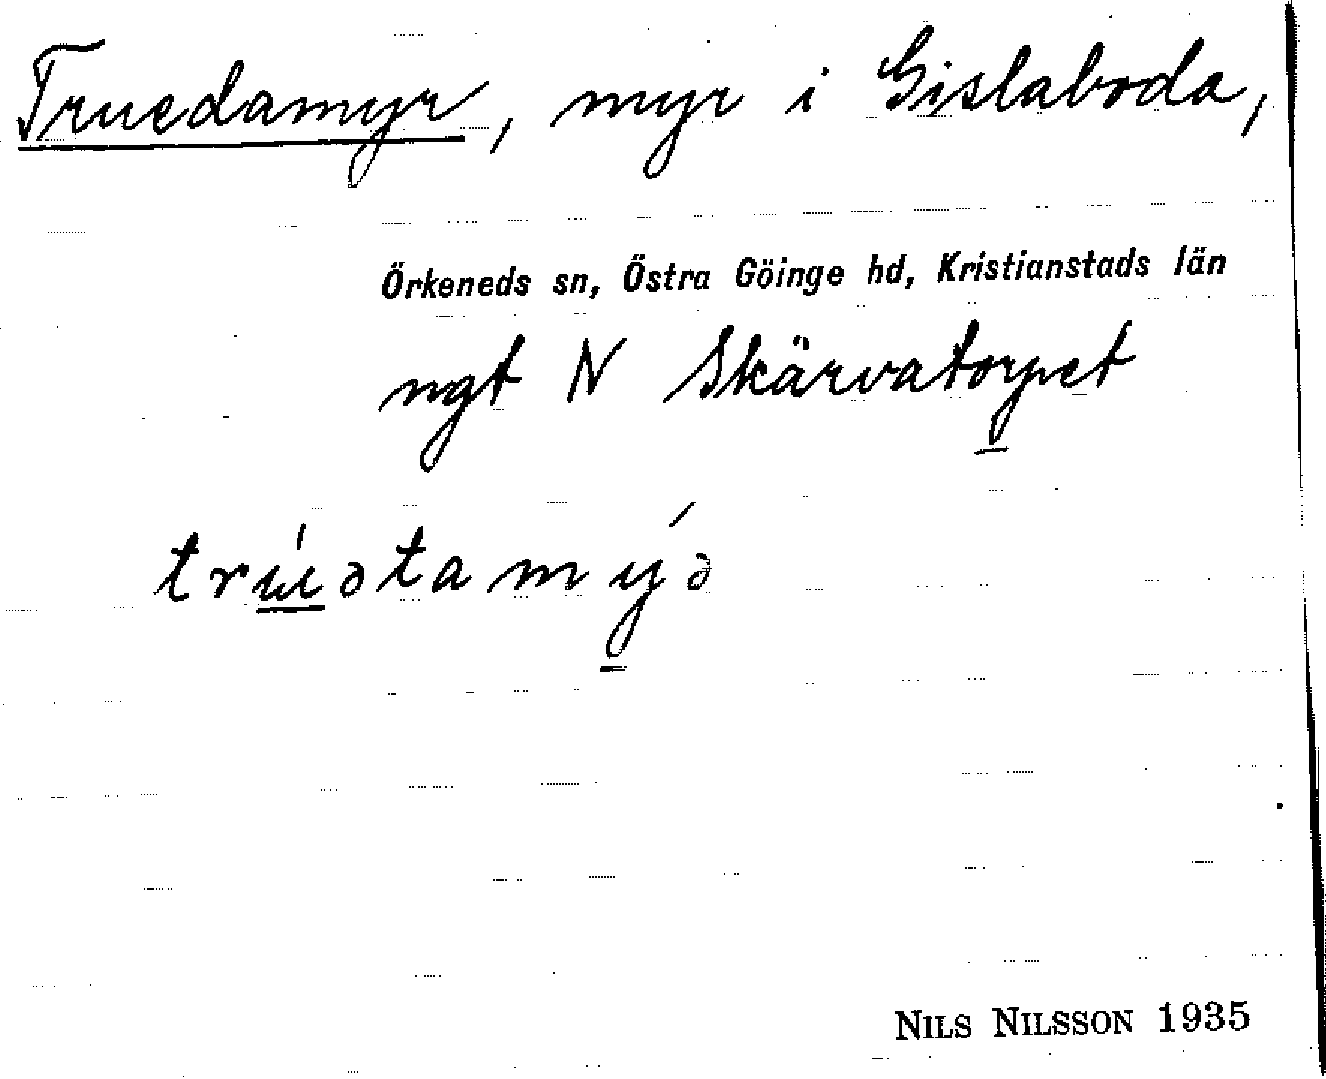 Truedamyr, myr i Gislaboda,
Örkeneds sn, Östra Göinge hd, Kristianstads län
ngt N Skärvatorpet
trúətamýə
NILS NILSSON 1935